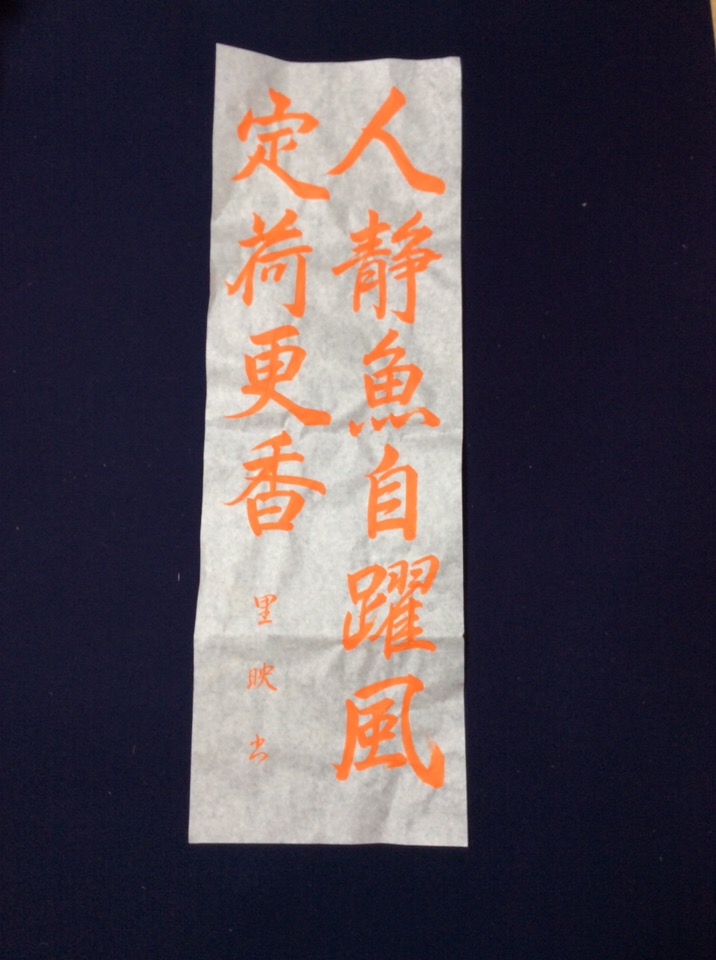 人静魚自躍風
定荷更香
里映书